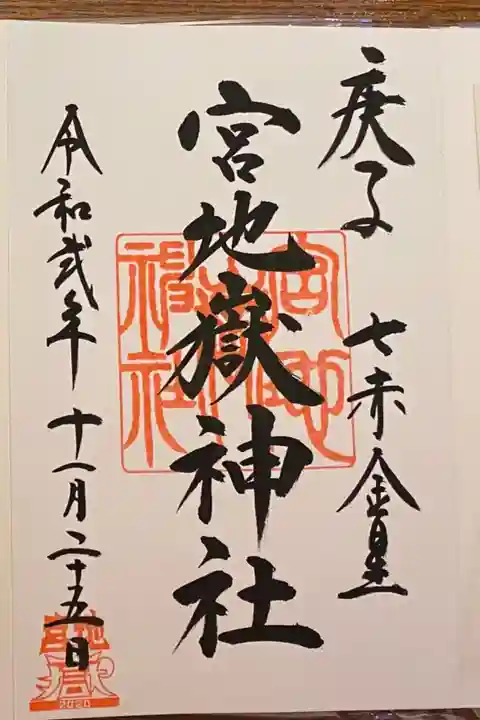 庚子 七赤金星
宮地嶽神社
宮地嶽神社
令和弐年十一月二十五日
宮地嶽
2020